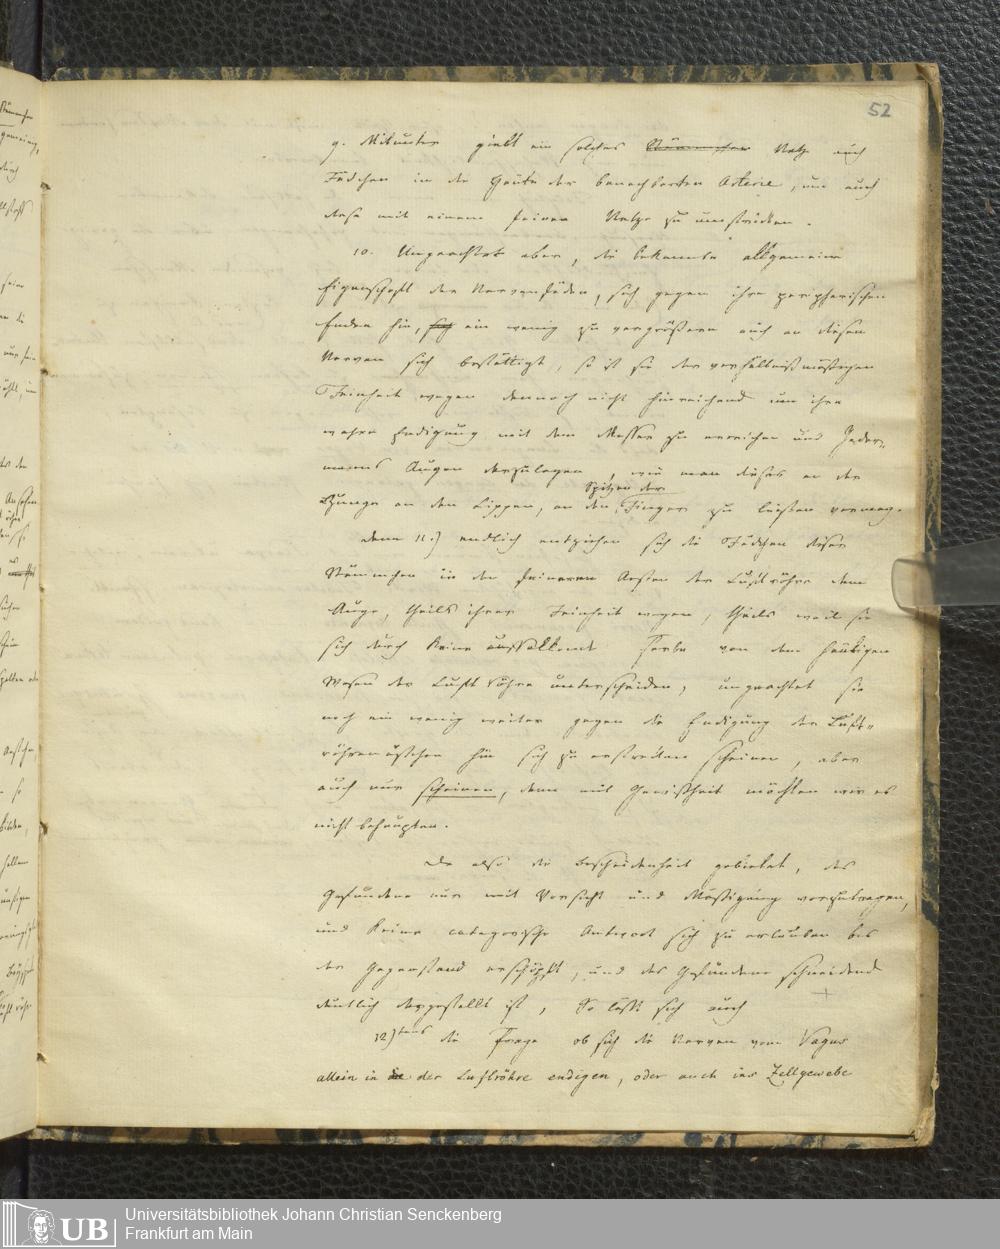 52
9. Mitunter giebt ein solches Stämmchen Netz auch
Fädchen in die Häute der benachbarten Arterie, um auch
diese mit einem feinen Netze zu umstricken.
10. Ungeachtet aber, die bekannte allgemeine
Eigenschaft der Nervenfäden, sich gegen ihre peripherischen
Enden hin, sich ein wenig zu vergrößern auch an diesen
Nerven sich bestättigt, so ist sie der verhältnißmäßigen
Feinheit wegen dennoch nicht hinreichend um ihre
wahre Endigung mit dem Messer zu erreichen und Jeder-
manns Augen darzulegen, wie man dieses an der
Spitzen der
Zunge an den Lippen, an den Finger zu leisten vermag.
denn 11.) endlich entziehen sich die Fädchen dieser
Stämmchen in den feineren Aesten der Luftröhre dem
Auge, theils ihrer Feinheit wegen, theils weil sie
sich durch keine auffallende Farbe von dem häutigen
Wesen der Luftröhre unterscheiden, ungeachtet sie
noch ein wenig weiter gegen die Endigung der Luft-
röhrenästchen hin sich zu erstrecken scheinen, aber
auch nur scheinen, denn mit Gewißheit möchten wir es
nicht behaupten.
Da also die Bescheidenheit gebietet, das
Gefundene nur mit Vorsicht und Mäßigung vorzutragen,
und keine categorische Antwort sich zu erlauben bis
der Gegenstand erschöpft, und das Gefundene schneidend
deutlich dargestellt ist, So läßt sich auch
12)tens die Frage ob sich die Nerven vom Vagus
allein in die der Luftröhre endigen, oder auch ins Zellgewebe
UB
Universitätsbibliothek Johann Christian Senckenberg
Frankfurt am Main